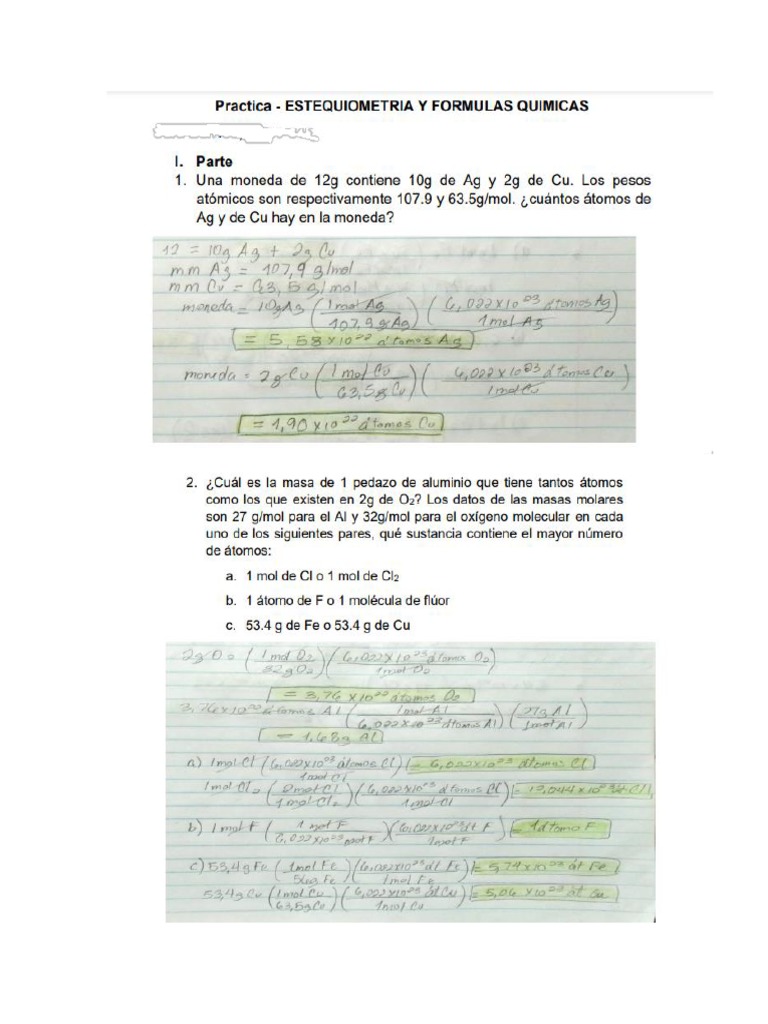 Practica - ESTEQUIOMETRIA Y FORMULAS QUIMICAS
I. Parte
1. Una moneda de 12g contiene 10g de Ag y 2g de Cu. Los pesos
atómicos son respectivamente 107.9 y 63.5g/mol. ¿cuántos átomos de
Ag y de Cu hay en la moneda?
12 = 10g Ag + 2g Cu
mm Ag = 107,9 g/mol
mm Cu = 63,5 g/mol
moneda = 10gAg (1mol Ag / 107,9 gAg) (6,022x10²³ átomos Ag / 1mol Ag)
= 5,58x10²² átomos Ag
moneda = 2gCu (1mol Cu / 63,5g Cu) (6,022x10²³ átomos Cu / 1molCu)
= 1,90x10²² átomos Cu
2. ¿Cuál es la masa de 1 pedazo de aluminio que tiene tantos átomos
como los que existen en 2g de O₂? Los datos de las masas molares
son 27 g/mol para el Al y 32g/mol para el oxígeno molecular en cada
uno de los siguientes pares, qué sustancia contiene el mayor número
de átomos:
a. 1 mol de Cl o 1 mol de Cl₂
b. 1 átomo de F o 1 molécula de flúor
c. 53.4 g de Fe o 53.4 g de Cu
(1mol O₂ / 32gO₂) (6,022x10²³ átomos O₂ / 1mol O₂)
= 3,76 x10²² átomos O₂
3,76x10²² átomos Al (1mol Al / 6,022x10²³ átomos Al) (27g Al / 1mol Al)
= 1,68g Al
a) 1mol Cl (6,022x10²³ átomos Cl / 1mol Cl) = 6,022x10²³ átomos Cl
1mol Cl₂ (2mol Cl / 1mol Cl₂) (6,022x10²³ átomos Cl / 1mol Cl) = 12,044x10²³ át Cl
b) 1mol F (1 mol F / 6,022x10²³ mol F) (6,022x10²³ át F / 1mol F) = 1átomo F
c) 53,4g Fe (1mol Fe / 56g Fe) (6,022x10²³ át Fe / 1mol Fe) = 5,74x10²³ át Fe
53,4g Cu (1mol Cu / 63,5g Cu) (6,022x10²³ át Cu / 1mol Cu) = 5,06 x10²³ át Cu